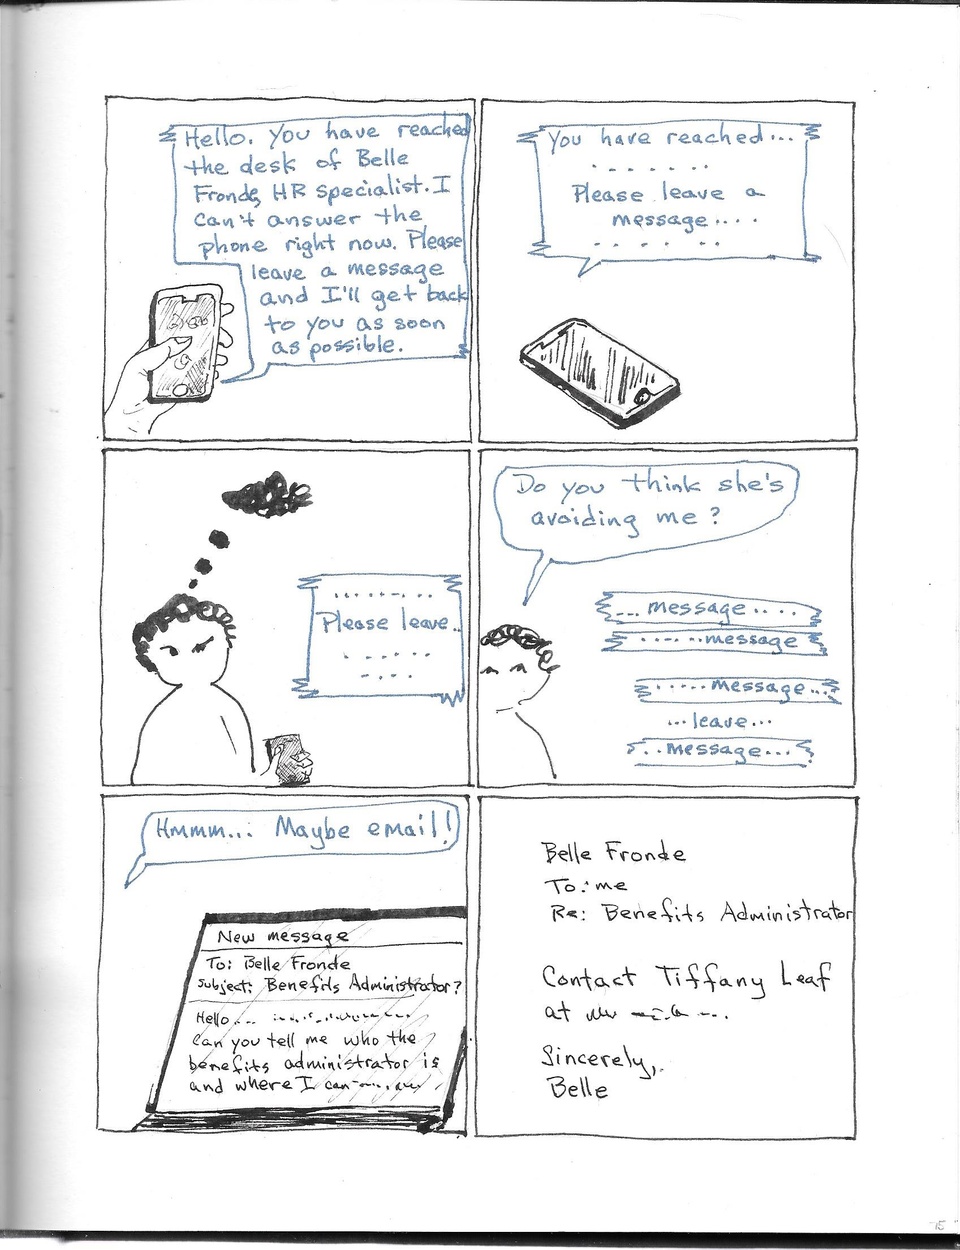 Hello. You have reached
the desk of Belle
Fronde, HR specialist. I
can't answer the
phone right now. Please
leave a message
and I'll get back
to you as soon
as possible.
You have reached...
. . . . . .
Please leave a
message....
. . . . . .
. . . . . . .
Please leave..
. . . . . .
. . . .
Do you think she's
avoiding me?
... message ....
......message
......message...
...leave...
...message...
Hmmm... Maybe email!
New message
To: Belle Fronde
Subject: Benefits Administrator?
Hello...
Can you tell me who the
benefits administrator is
and where I can
Belle Fronde
To: me
Re: Benefits Administrator
Contact Tiffany Leaf
at
Sincerely,
Belle
15